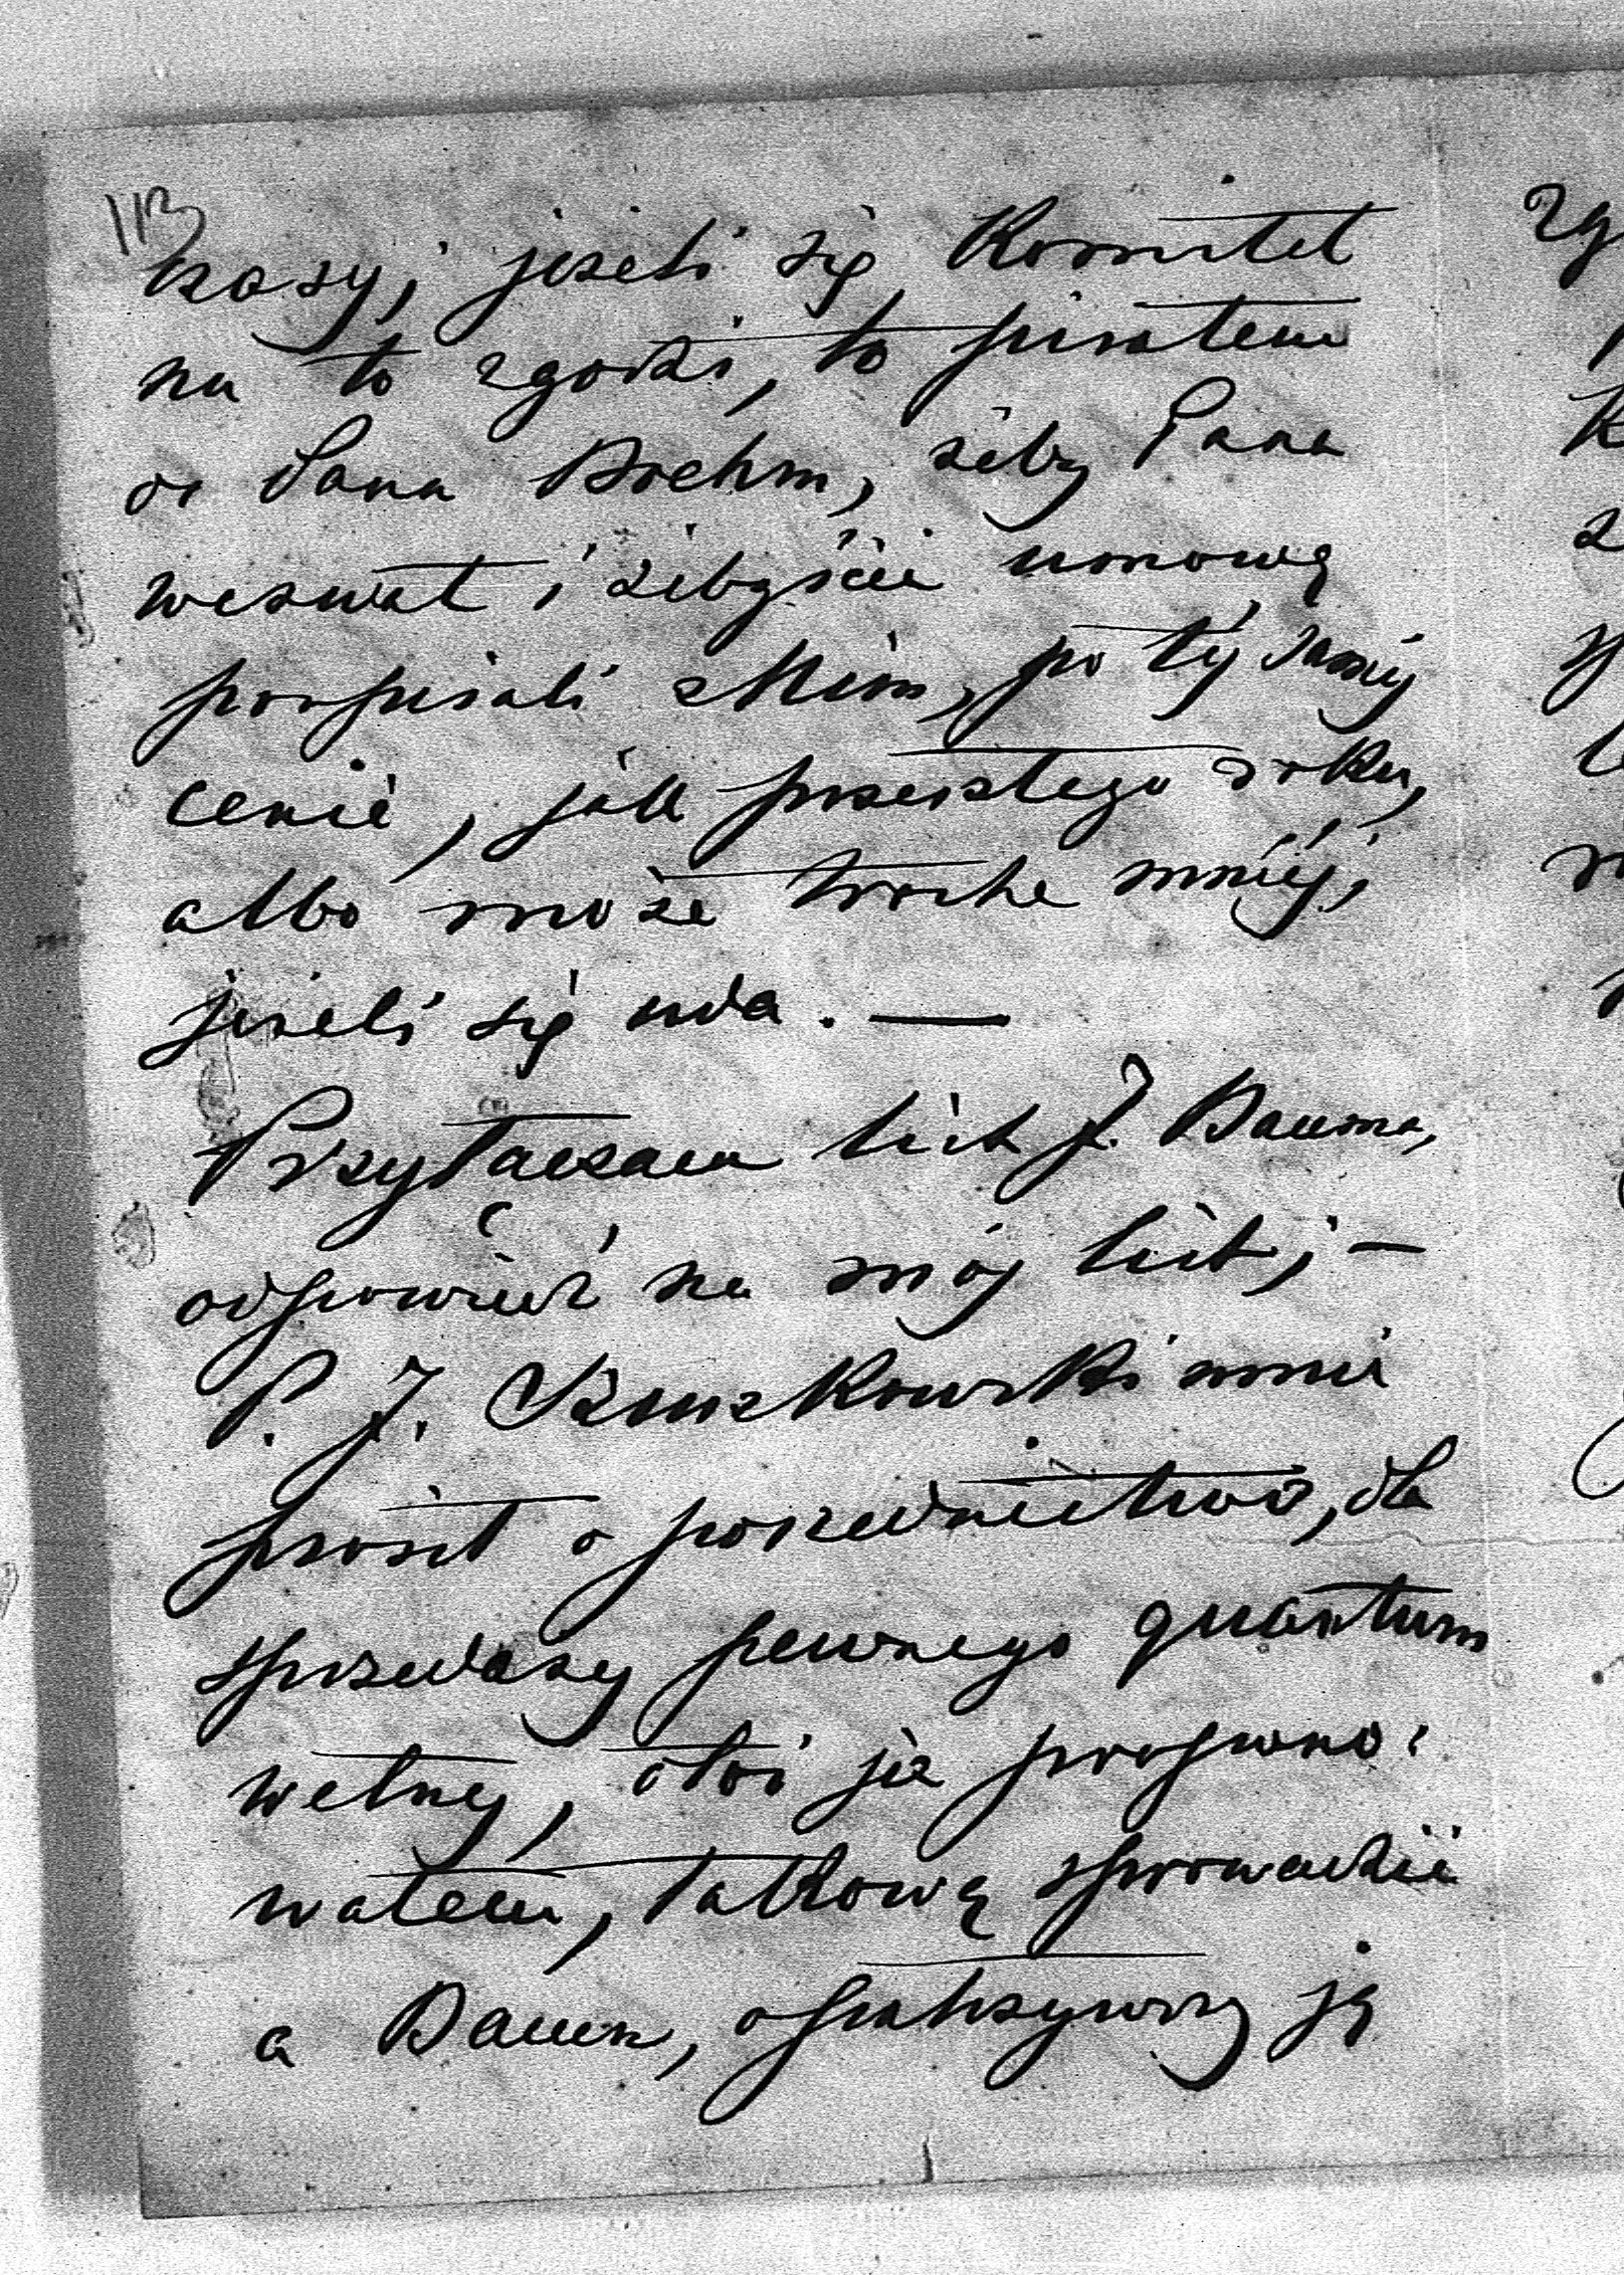 113
kasy, jeżeli się Komitet
na to zgodzi, to pisałem
do Pana Boehm, żeby Pana
wezwał i żebyście umowę
podpisali z Nim, po téj saméj
cenie, jak przeszłego roku,
albo może trochę mniéj,
jeżeli się uda. —
Przyłączam list J. Bauma,
odpowiedź na mój list; —
P. J. mnie
prosił o pośrednictwo, dla
sprzedaży pewnego quantum
wełny, otóż ja proponowałem
wałem, takową sprowadzić
a Baum, opatrzywszy ją